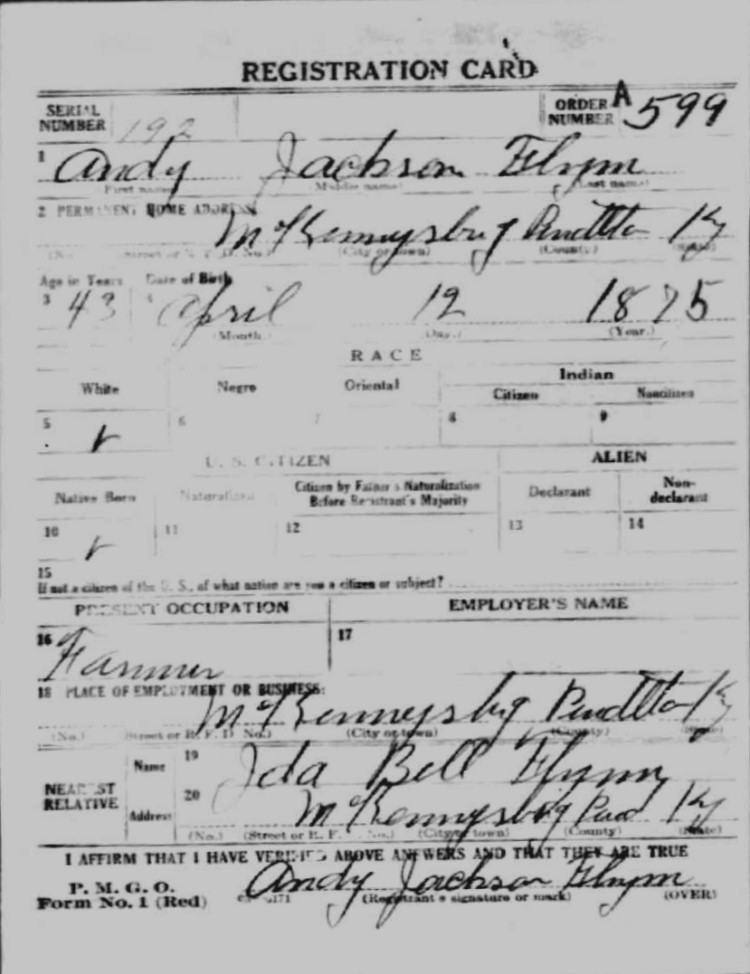 REGISTRATION CARD
SERIAL NUMBER 192 ORDER NUMBER A 599
1 Andy Jackson Flynn
(First name) (Middle name) (Last name)
2 PERMANENT HOME ADDRESS:
McKennysburg Pendleton Ky
(No.) (Street or R. F. D. No.) (City or town) (County) (State)
Age in Years Date of Birth
3 43 4 April 12 1875
(Month.) (Day.) (Year.)
RACE
White Negro Oriental Indian
Citizen Noncitizen
5 ✓ 6 7 8 9
U. S. CITIZEN ALIEN
Native Born Naturalized Citizen by Father's Naturalization Before Registrant's Majority Declarant Non-declarant
10 ✓ 11 12 13 14
15
If not a citizen of the U. S., of what nation are you a citizen or subject?
PRESENT OCCUPATION EMPLOYER'S NAME
16 Farmer 17
18 PLACE OF EMPLOYMENT OR BUSINESS:
McKennysbrg Pendleton Ky
(No.) (Street or R. F. D. No.) (City or town) (County) (State)
NEAREST RELATIVE Name 19 Ida Bell Flynn
Address 20 McKennysbrg Pend Ky
(No.) (Street or R. F. D. No.) (City or town) (County) (State)
I AFFIRM THAT I HAVE VERIFIED ABOVE ANSWERS AND THAT THEY ARE TRUE
P. M. G. O.
Form No. 1 (Red) Andy Jackson Flynn
(Registrant's signature or mark) (OVER)